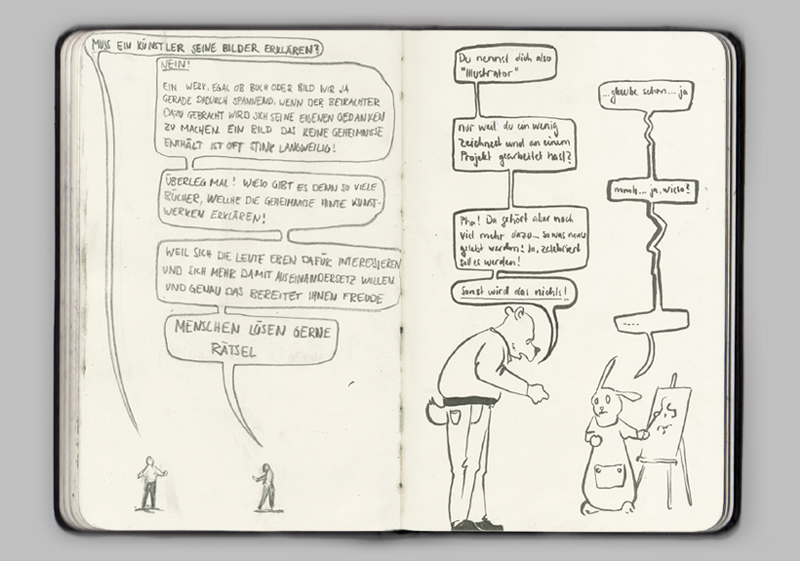 MUSS EIN KÜNSTLER SEINE BILDER ERKLÄREN?
NEIN!
EIN WERK, EGAL OB BUCH ODER BILD WIR JA
GERADE DADURCH SPANNEND, WENN DER BETRACHTER
DAZU GEBRACHT WIRD SICH SEINE EIGENEN GEDANKEN
ZU MACHEN. EIN BILD DAS KEINE GEHEIMNISSE
ENTHÄLT IST OFT STINK LANGWEILIG!
ÜBERLEG MAL! WIESO GIBT ES DENN SO VIELE
BÜCHER, WELCHE DIE GEHEIMNISSE HINTE KUNST-
WERKEN ERKLÄREN!
WEIL SICH DIE LEUTE EBEN DAFÜR INTERESSIEREN
UND SICH MEHR DAMIT AUSEINANDERSETZ WOLLEN
UND GENAU DAS BEREITET IHNEN FREUDE
MENSCHEN LÖSEN GERNE
RÄTSEL
Du nennst dich also
"Illustrator"
...glaube schon... ja
nur weil du ein wenig
zeichnest und an einem
Projekt gearbeitet hast?
mmh... ja, wieso?
Pha! Da gehört aber noch
viel mehr dazu... sowas muss
gelebt werden! Ja, zelebriert
soll es werden!
Sonst wird das nichts!
.....